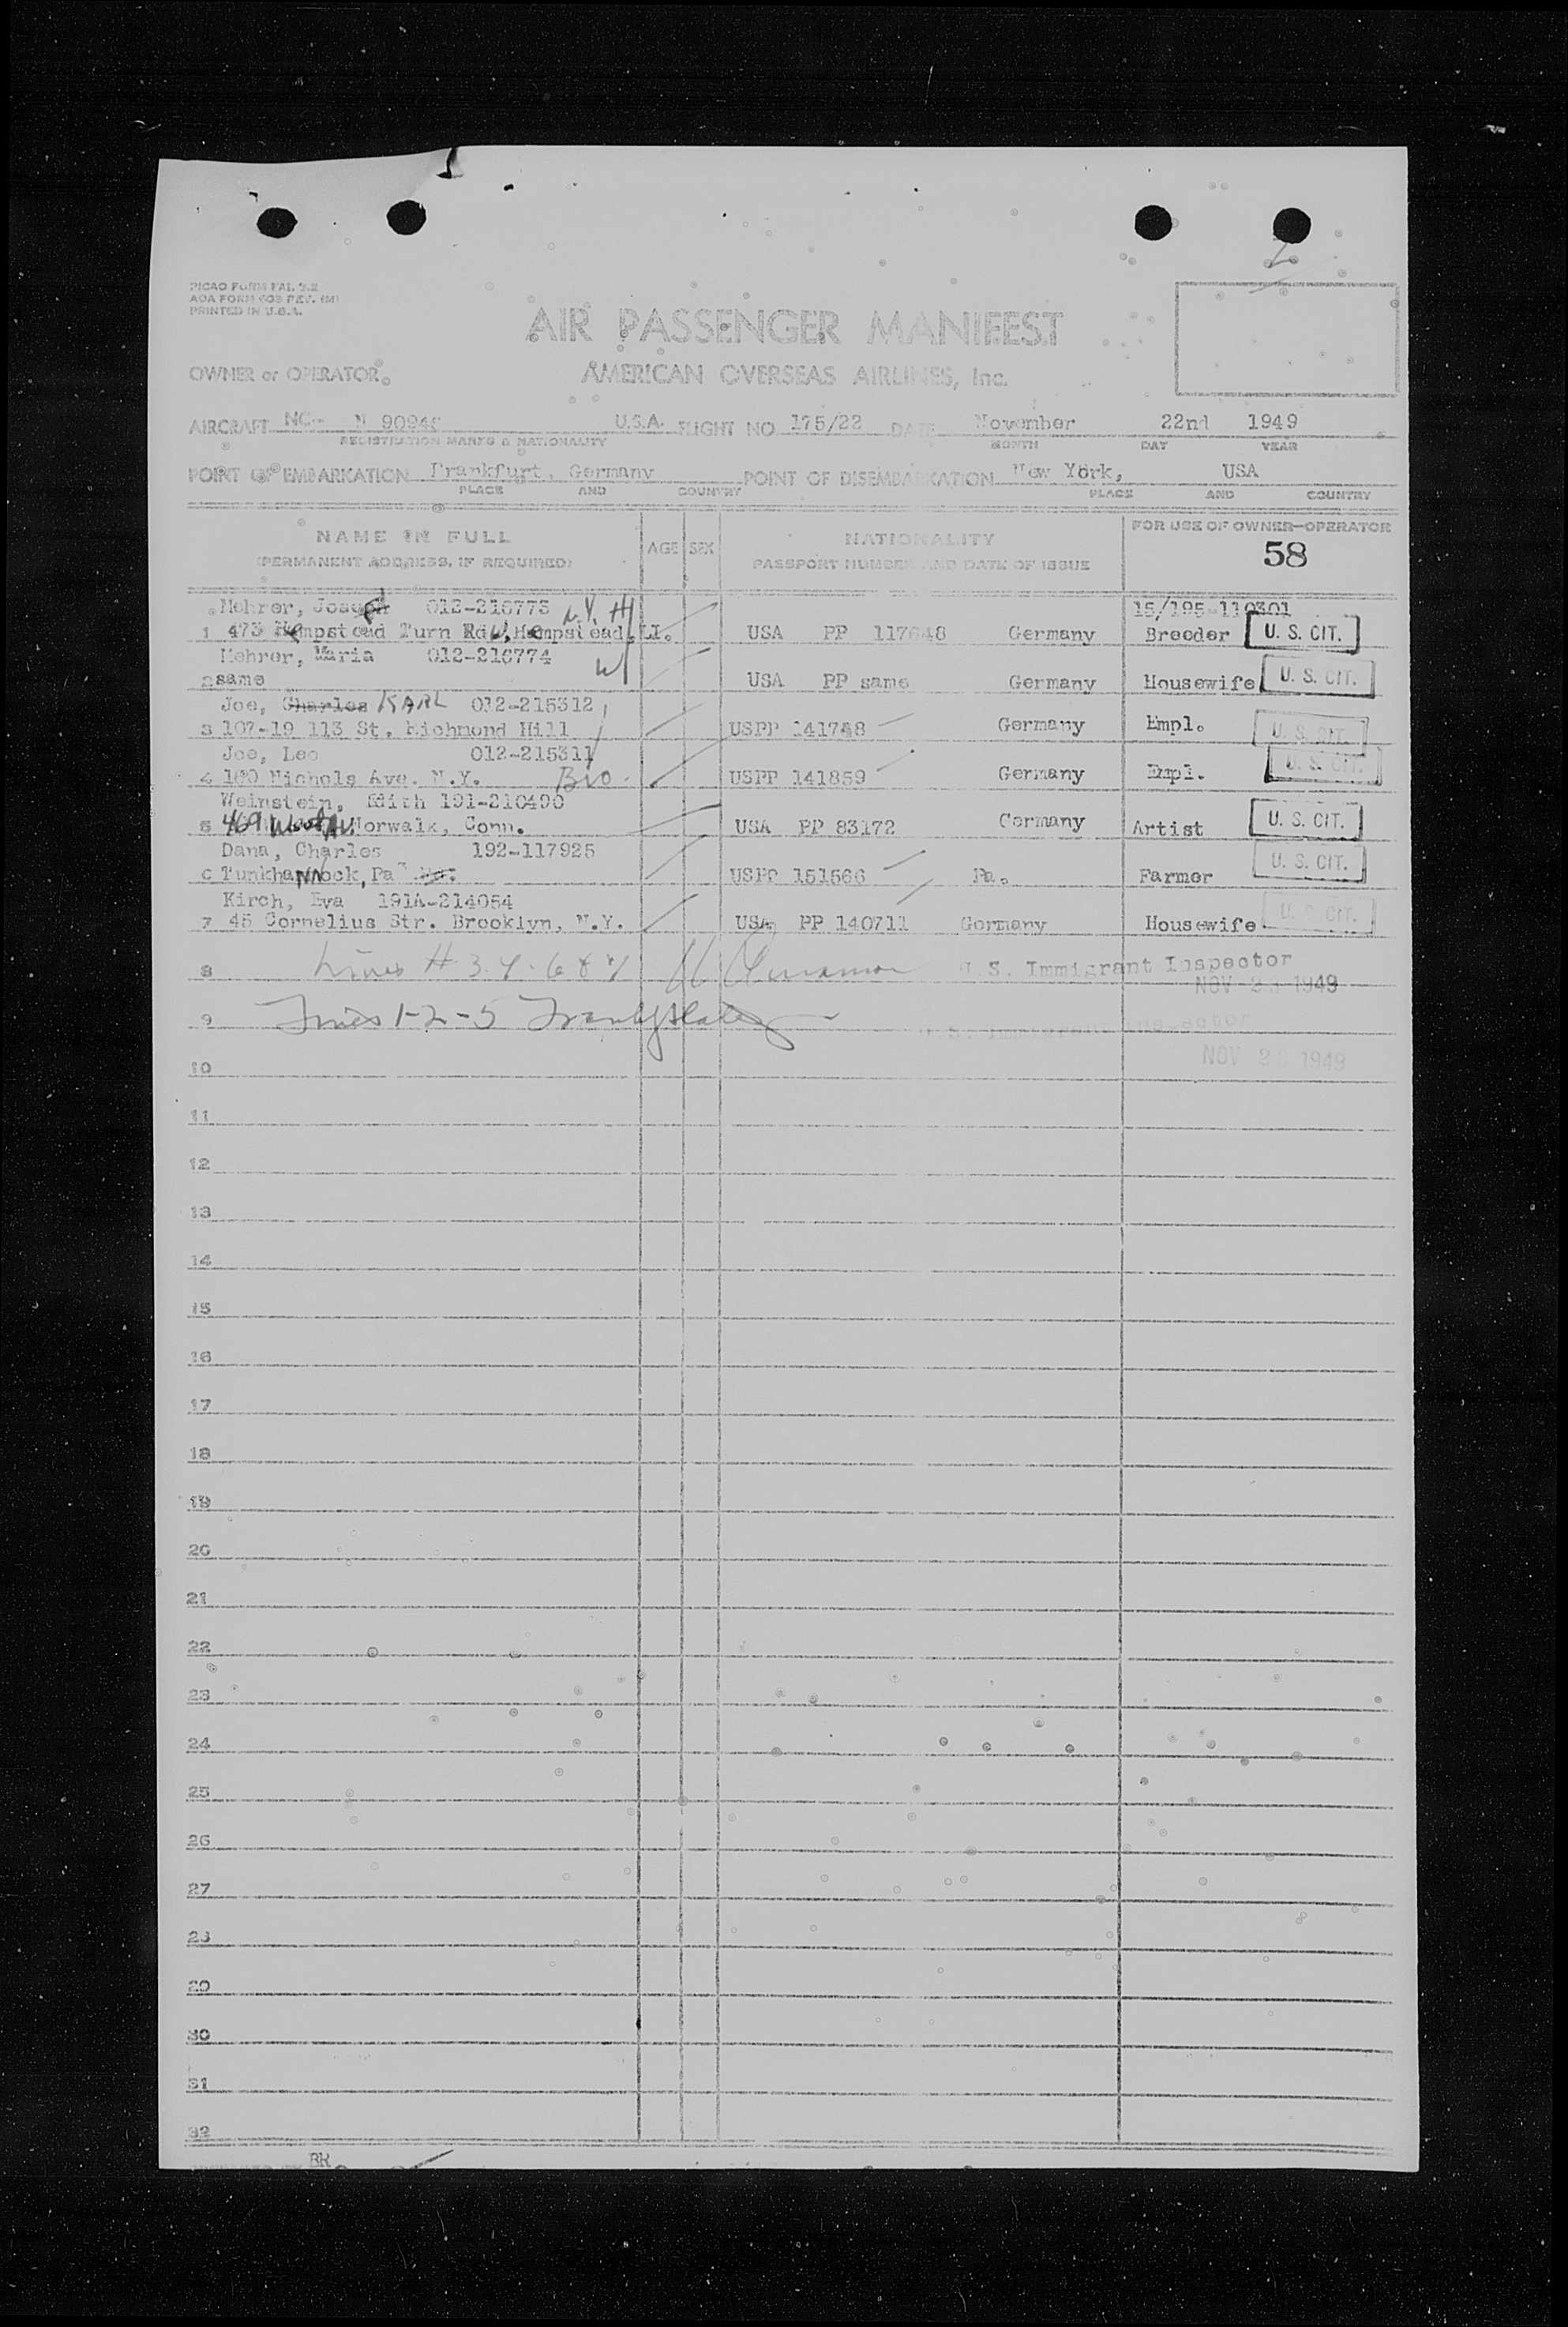 PICAO FORM FAL 2.2
AOA FORM 603 REV. (M)
PRINTED IN U.S.A.
AIR PASSENGER MANIFEST
OWNER or OPERATOR
AMERICAN OVERSEAS AIRLINES, Inc.
AIRCRAFT NC-- N 9094 U.S.A. FLIGHT NO 175/22 DATE November 22nd 1949
REGISTRATION MARKS & NATIONALITY MONTH DAY YEAR
POINT OF EMBARKATION Frankfurt, Germany POINT OF DISEMBARKATION New York, USA
PLACE AND COUNTRY PLACE AND COUNTRY
NAME IN FULL AGE SEX NATIONALITY FOR USE OF OWNER-OPERATOR
(PERMANENT ADDRESS, IF REQUIRED) PASSPORT NUMBER AND DATE OF ISSUE 58
Mehrer, Joseph 012-216773 15/195-110301
1 473 Hempstead Turn Rd W. Hempstead LI. USA PP 117648 Germany Breeder U. S. CIT.
Mehrer, Maria 012-216774
2 same USA PP same Germany Housewife U. S. CIT.
Joe, Charles KARL 012-215312
3 107-19 113 St. Richmond Hill USPP 141748 Germany Empl. U. S. CIT.
Joe, Leo 012-215311
4 180 Nichols Ave. N.Y. USPP 141859 Germany Empl. U. S. CIT.
Weinstein, Edith 191-210490
5 469 West Av. Norwalk, Conn. USA PP 83172 Germany Artist U. S. CIT.
Dana, Charles 192-117925
6 Tunkhannock, Pa USPP 151566 Pa. Farmer U. S. CIT.
Kirch, Eva 191A-214054
7 45 Cornelius Str. Brooklyn, N.Y. USA PP 140711 Germany Housewife U. S. CIT.
8 Lines # 3.4.6 & 7 U.S. Immigrant Inspector
NOV 23 1949
9 Lines 1-2-5 U.S. Immigrant Inspector
NOV 1949
10
11
12
13
14
15
16
17
18
19
20
21
22
23
24
25
26
27
28
29
30
31
32
BR